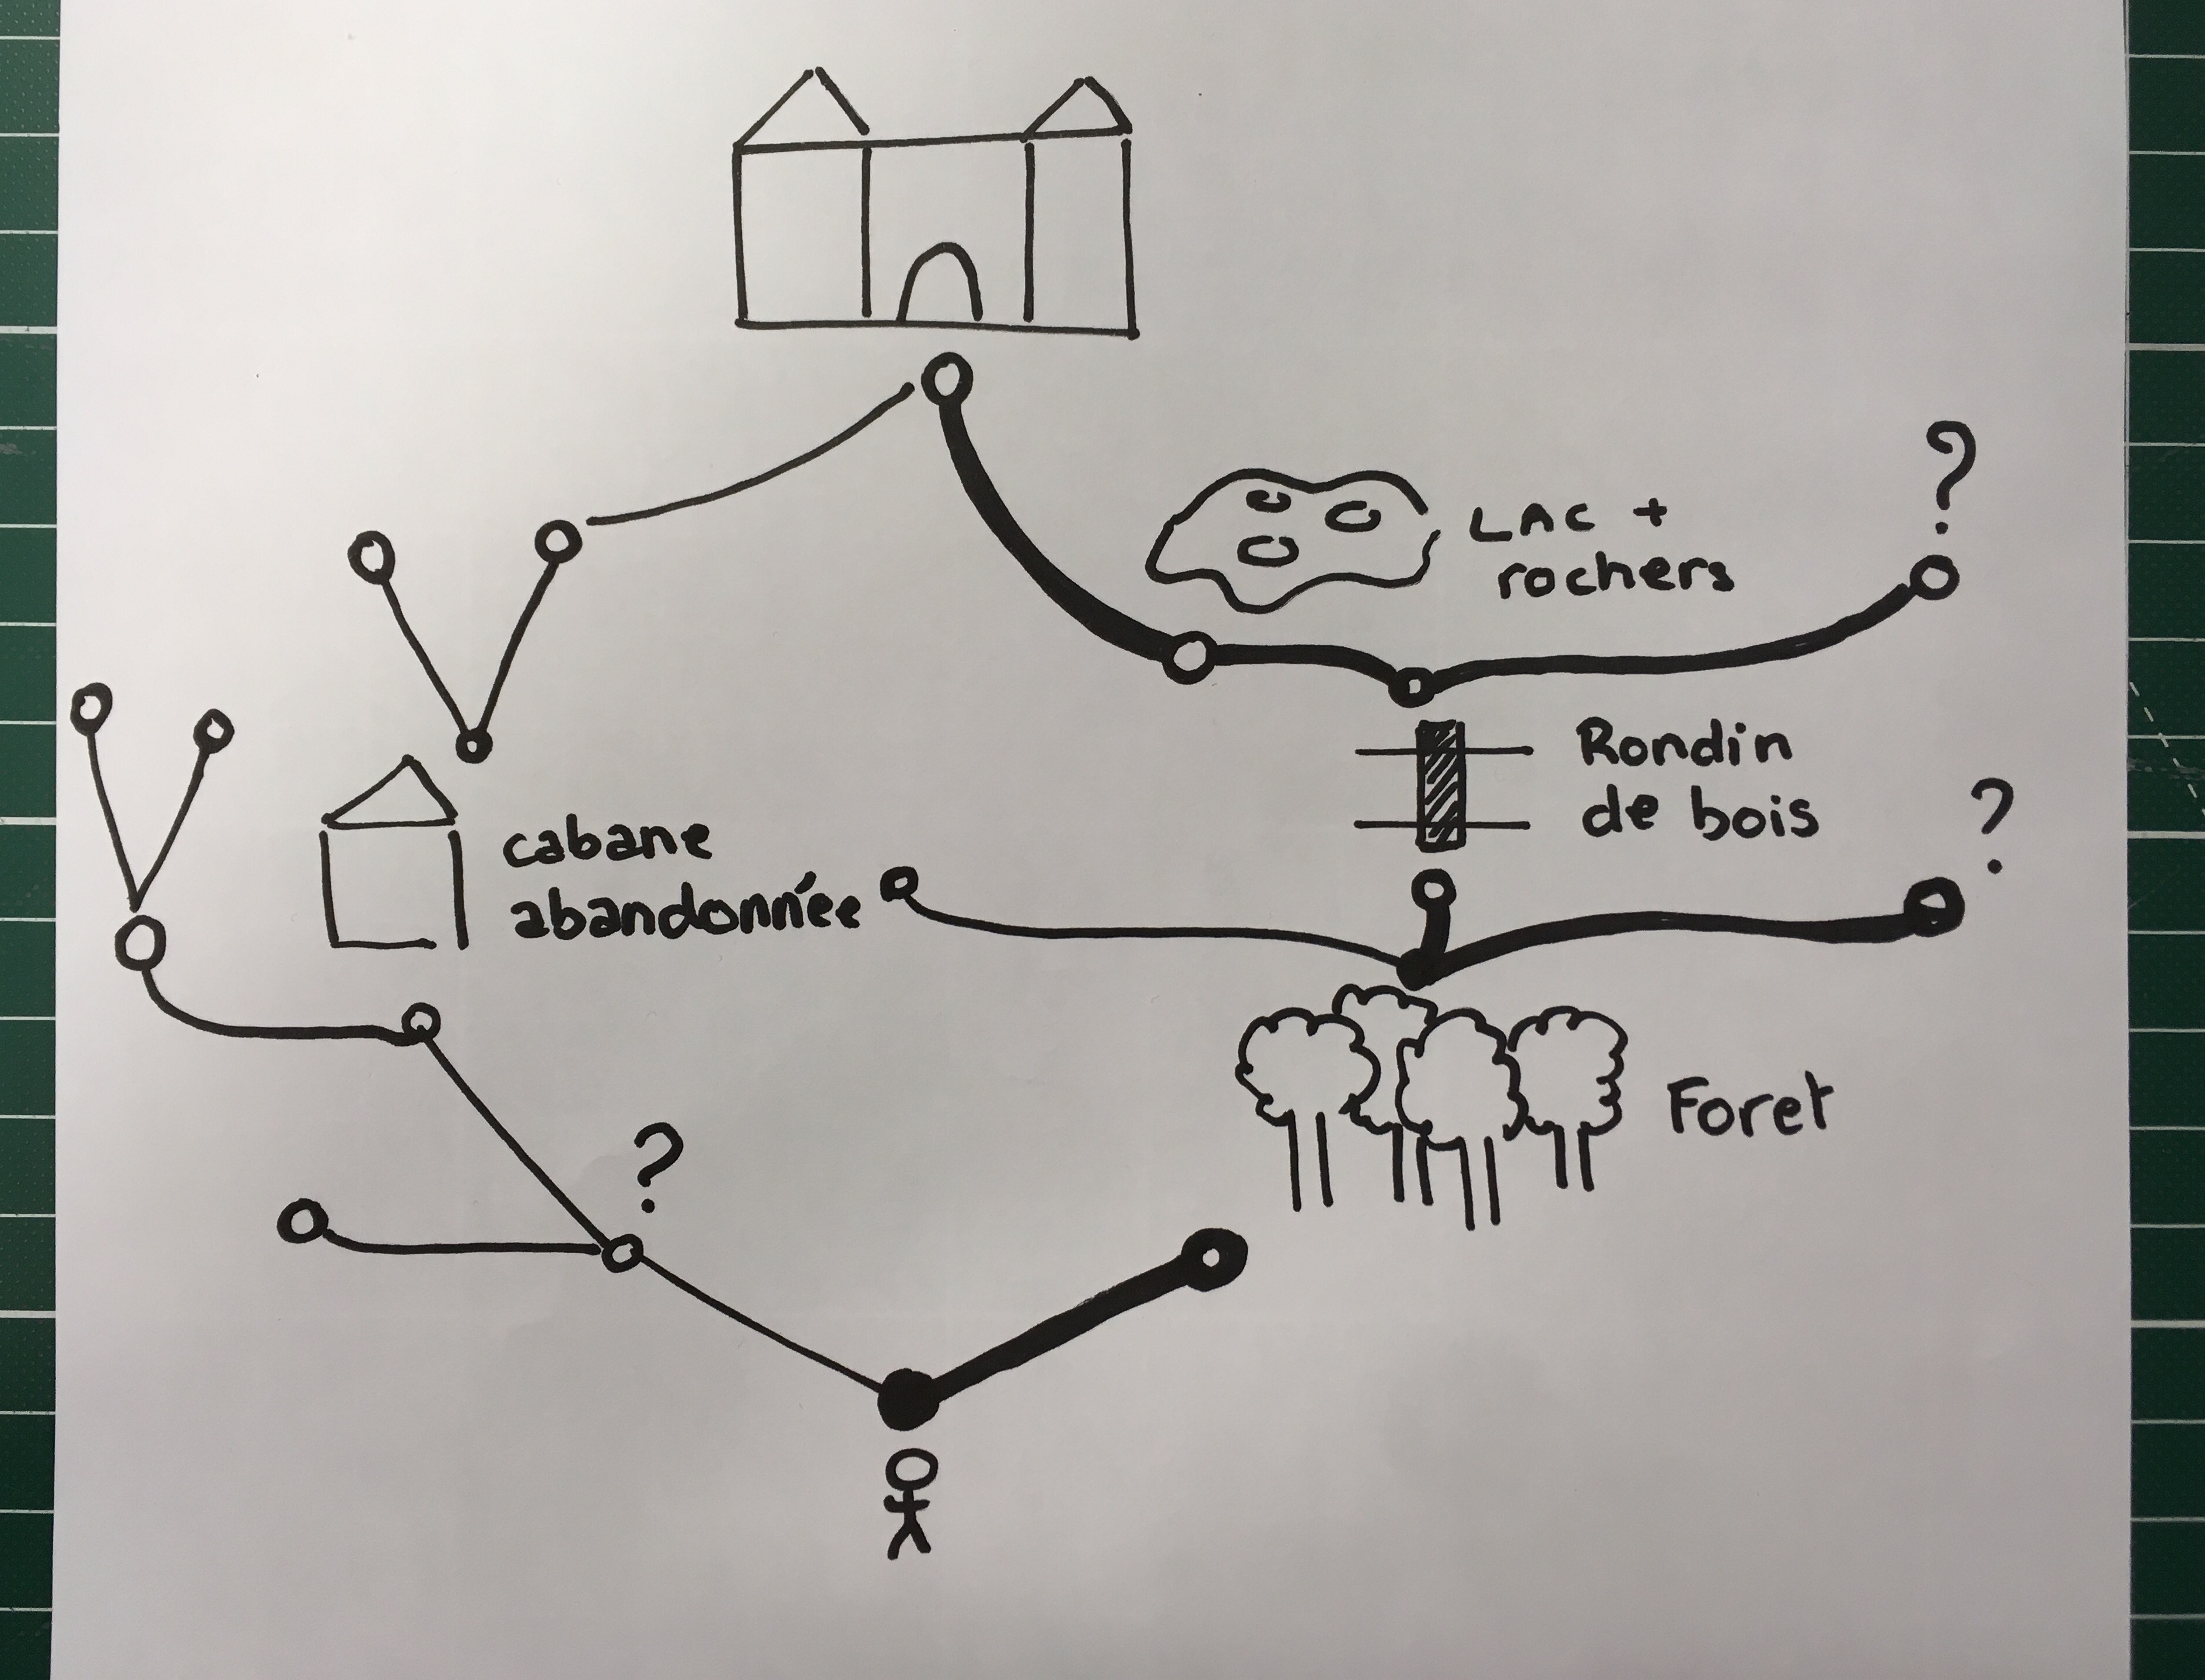 ?
LAC +
rochers
Rondin
de bois
?
cabane
abandonnée
Foret
?